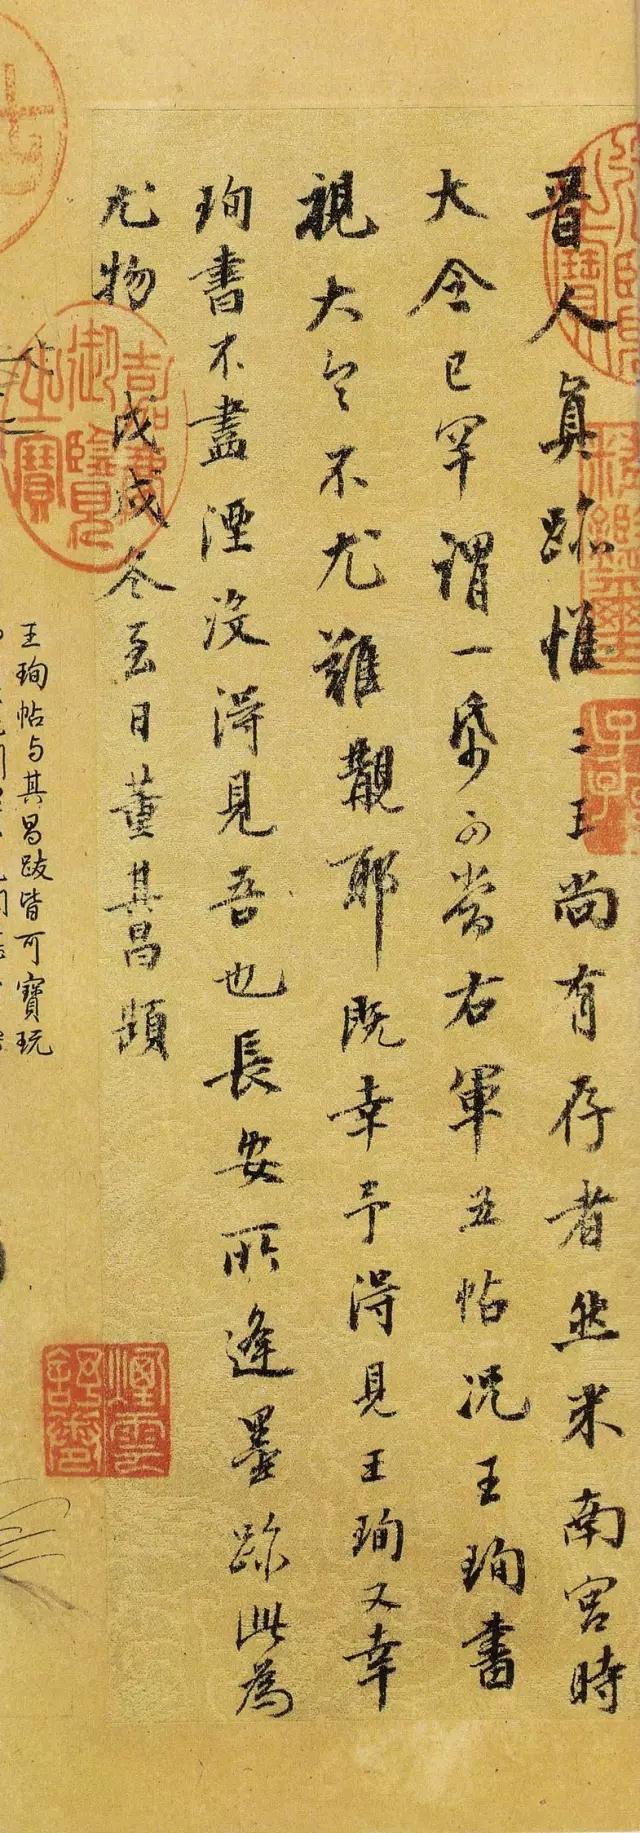 晉人真跡惟二王尚有存者然米南宮時
大令已罕謂一帋可當右軍五帖況王珣書
視大令不尤難覯耶既幸予得見王珣又幸
珣書不盡湮沒得見吾也長安所逢墨跡此為
尤物
戊戌冬至日董其昌題
嘉慶御覽之寶
煙雲
王珣帖与其昌跋皆可寶玩